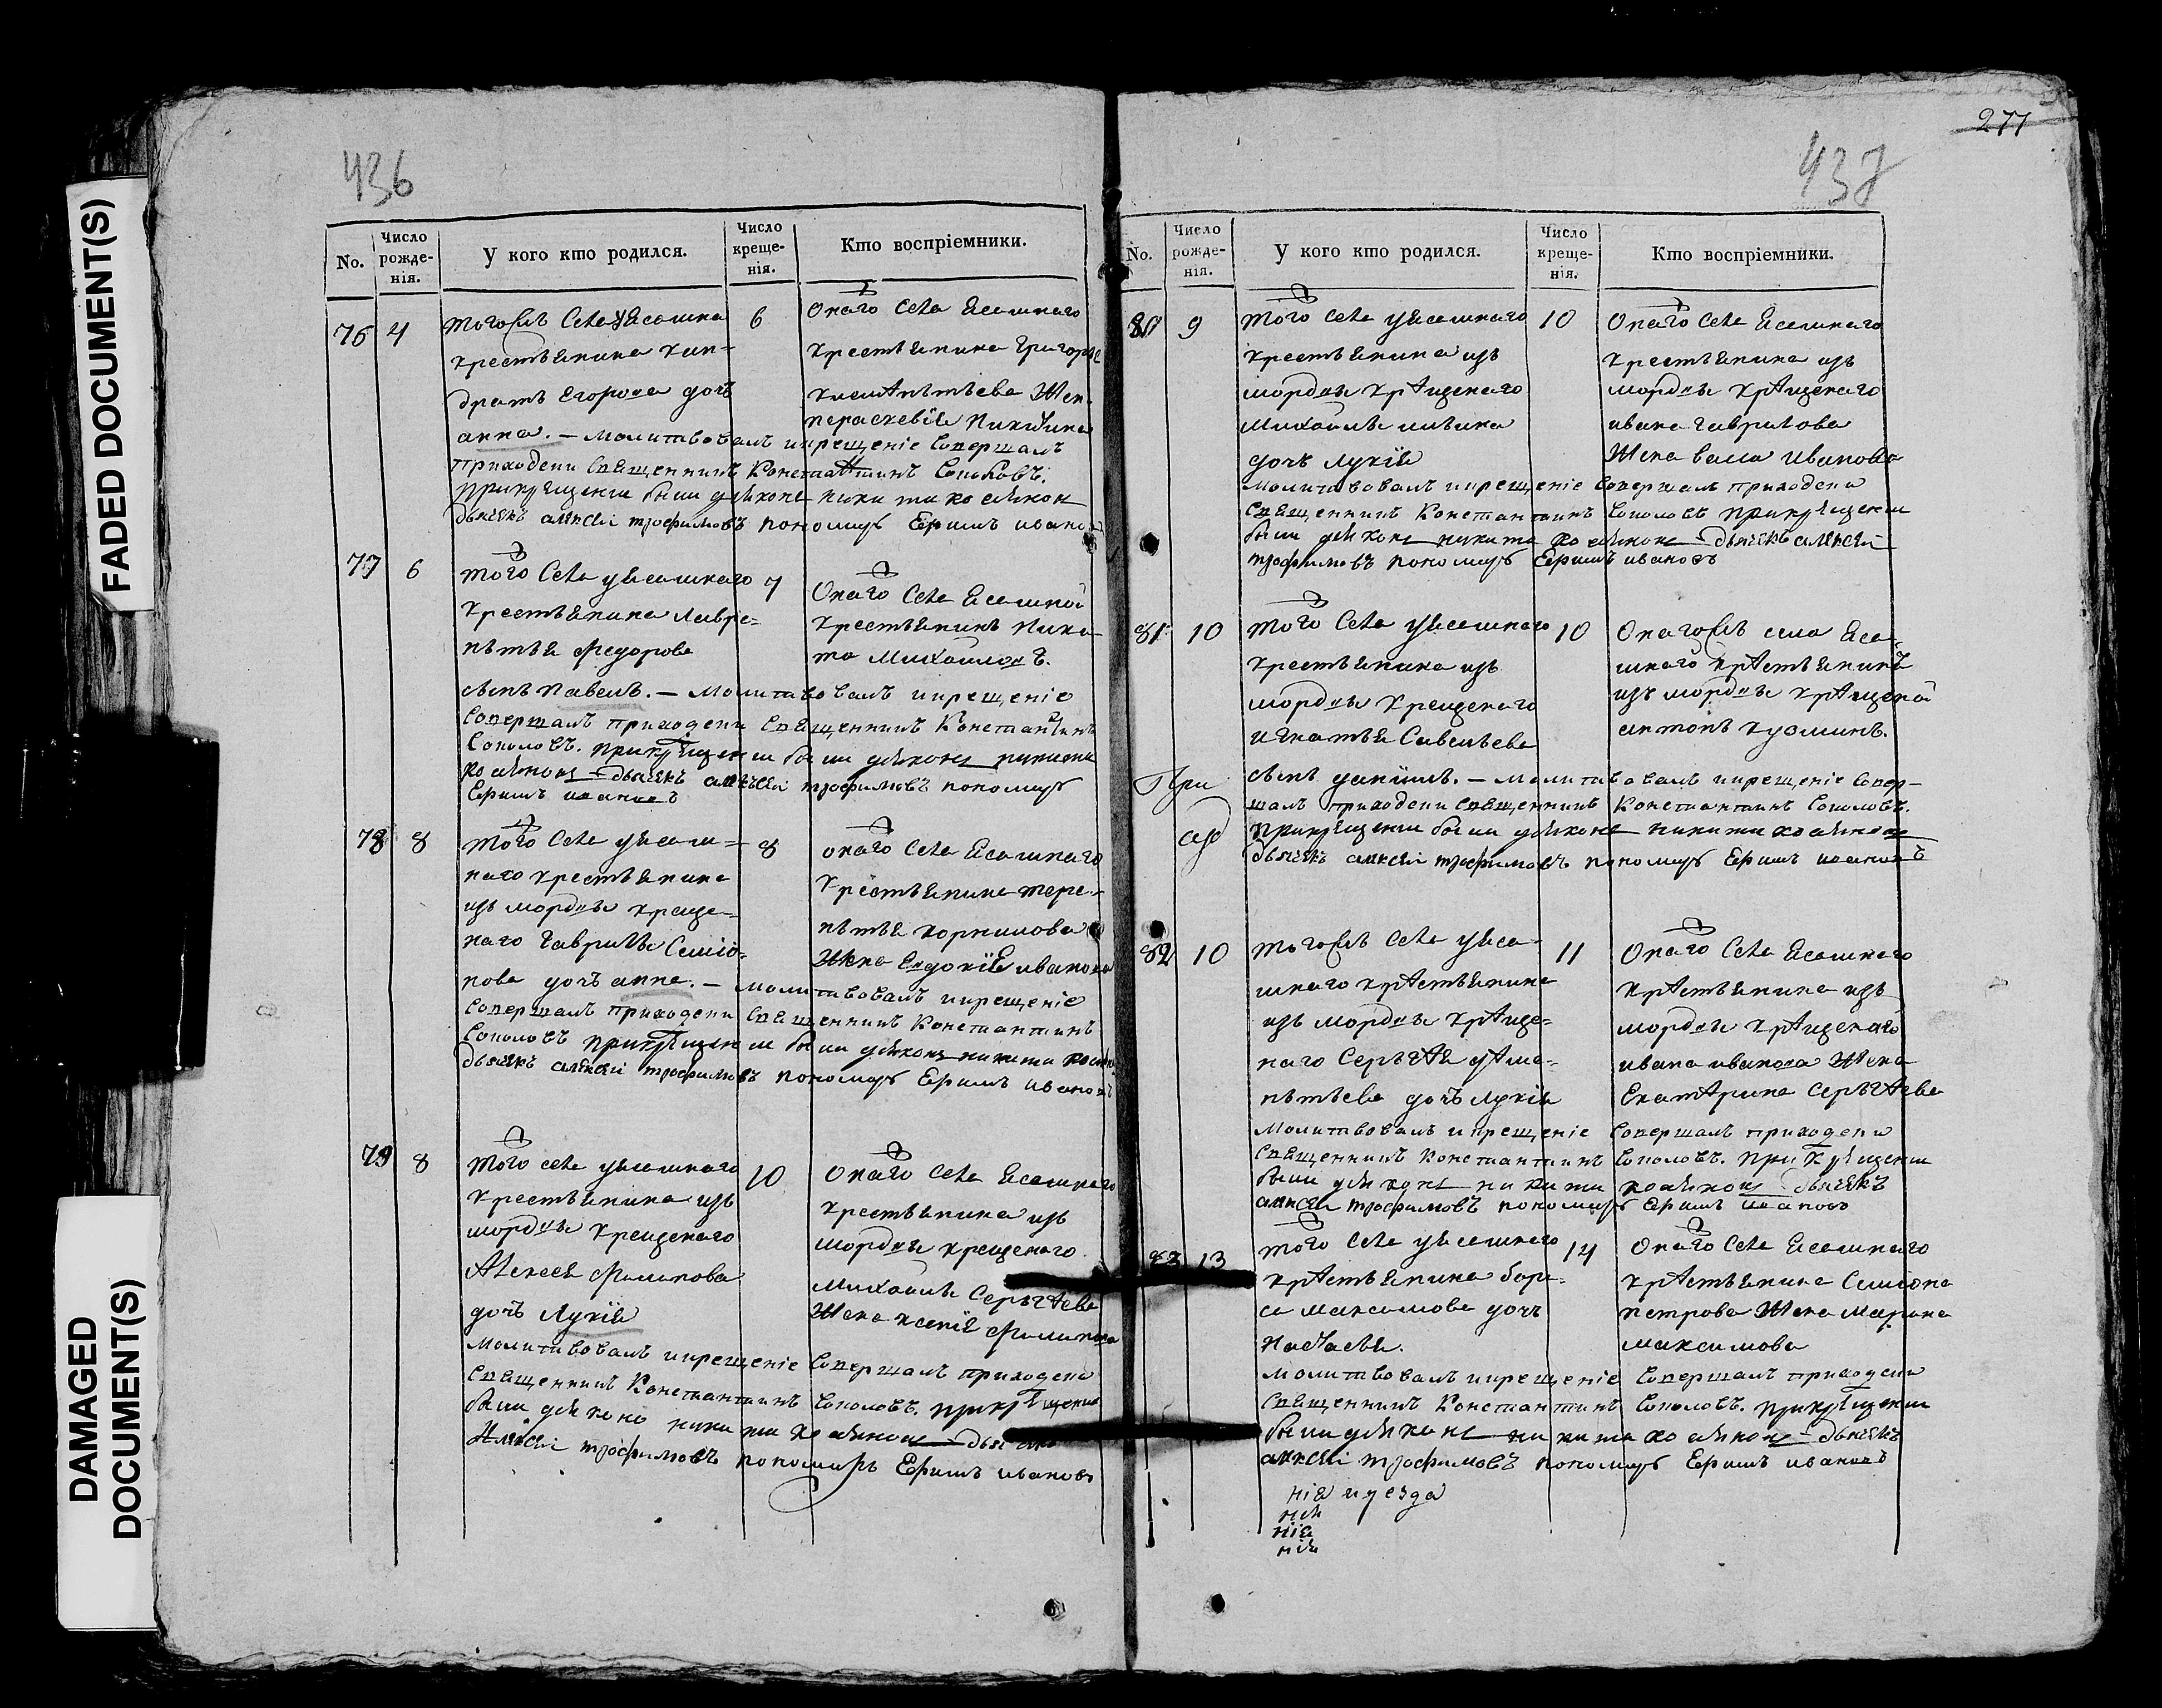 FADED DOCUMENT(S)
DAMAGED
DOCUMENT(S)
436
No.
Число рожде- нія.
У кого кто родился.
Число креще- нія.
Кто воспріемники.
76 4
Тогожъ села Ясашна
крестьянина Кон-
дратъ Егорова дочь
анна. — Молитвовалъ икрещеніе Совершалъ
приходскій Священникъ Константинъ Соколовъ.
Прикрещеніи были
дьячекъ алексей трофимовъ пономарь Ермилъ ивановъ
6
Онаго села Ясашнаго
крестьянина Григорья
жена
перасковия Никитина
77 6
Того села уясашнаго
крестьянина Лавре-
нтья Федорова
сынъ Павелъ. — Молитвовалъ икрещеніе
Совершалъ приходскій Священникъ Константинъ
Соколовъ. Прикрещеніи были дьяконъ никита
дьячекъ алексей трофимовъ пономарь
Ермилъ ивановъ
7
Онаго села Ясашной
крестьянинъ Ники-
та Михайловъ.
78 8
Того села уясаш-
наго крестьянина
изъ мордвы креще-
наго Гаврилы Семіо-
нова дочь анна. — Молитвовалъ икрещеніе
Совершалъ приходскій Священникъ Константинъ
Соколовъ Прикрещеніи были дьяконъ никита
дьячекъ алексей трофимовъ пономарь Ермилъ ивановъ
8
Онаго села Ясашнаго
крестьянина тере-
нтья корнилова
жена Евдокия иванова
79 8
Того села уясашнаго
крестьянина изъ
мордвы крещенаго
Алексея Филипова
дочь Лукія
Молитвовалъ икрещеніе Совершалъ приходскій
Священникъ Константинъ Соколовъ. Прикрещеніи
были дьяконъ никита
Алексей трофимовъ пономарь Ермилъ ивановъ
10
Онаго села Ясашнаго
крестьянина изъ
мордвы крещенаго
Михайлы Сергѣева
жена ксения Филипова
277
437
No.
Число рожде- нія.
У кого кто родился.
Число креще- нія.
Кто воспріемники.
80 9
Того села уясашнаго
крестьянина изъ
мордвы крещенаго
Михайлы
дочь лукія
Молитвовалъ икрещеніе Совершалъ приходскій
Священникъ Константинъ Соколовъ Прикрещеніи
были дьяконъ никита дьячекъ алексей
трофимовъ пономарь Ермилъ ивановъ
10
Онаго села Ясашнаго
крестьянина изъ
мордвы крещенаго
ивана гаврилова
жена васса иванова
81 10
Того села уясашнаго
крестьянина изъ
мордвы крещенаго
игнатья Савельева
сынъ даніилъ. — Молитвовалъ икрещеніе Совер-
шалъ приходскій Священникъ Константинъ Соколовъ.
Прикрещеніи были дьяконъ никита
дьячекъ алексей трофимовъ пономарь Ермилъ ивановъ
10
Онагожъ села Яса-
шнаго крестьянинъ
изъ мордвы крещеной
антонъ кузминъ.
82 10
Тогожъ села уяса-
шнаго крестьянина
изъ мордвы креще-
наго Сергѣя деме-
нтьева дочь лукія
Молитвовалъ икрещеніе Совершалъ приходскій
Священникъ Константинъ Соколовъ. При крещеніи
были дьяконъ никита дьячекъ
алексей трофимовъ пономарь Ермилъ ивановъ
11
Онаго села Ясашнаго
крестьянина изъ
мордвы крещенаго
ивана иванова жена
Екатерина Сергѣева
83 13
Того села уясашнаго
крестьянина бори-
са максимова дочь
Настасья.
Молитвовалъ икрещеніе Совершалъ приходскій
Священникъ Константинъ Соколовъ. Прикрещеніи
были дьяконъ никита дьячекъ
алексей трофимовъ пономарь Ермилъ ивановъ
14
Онаго села Ясашнаго
крестьянина Симіона
петрова жена Марина
максимова
нія иуезда
нія
нія
нія